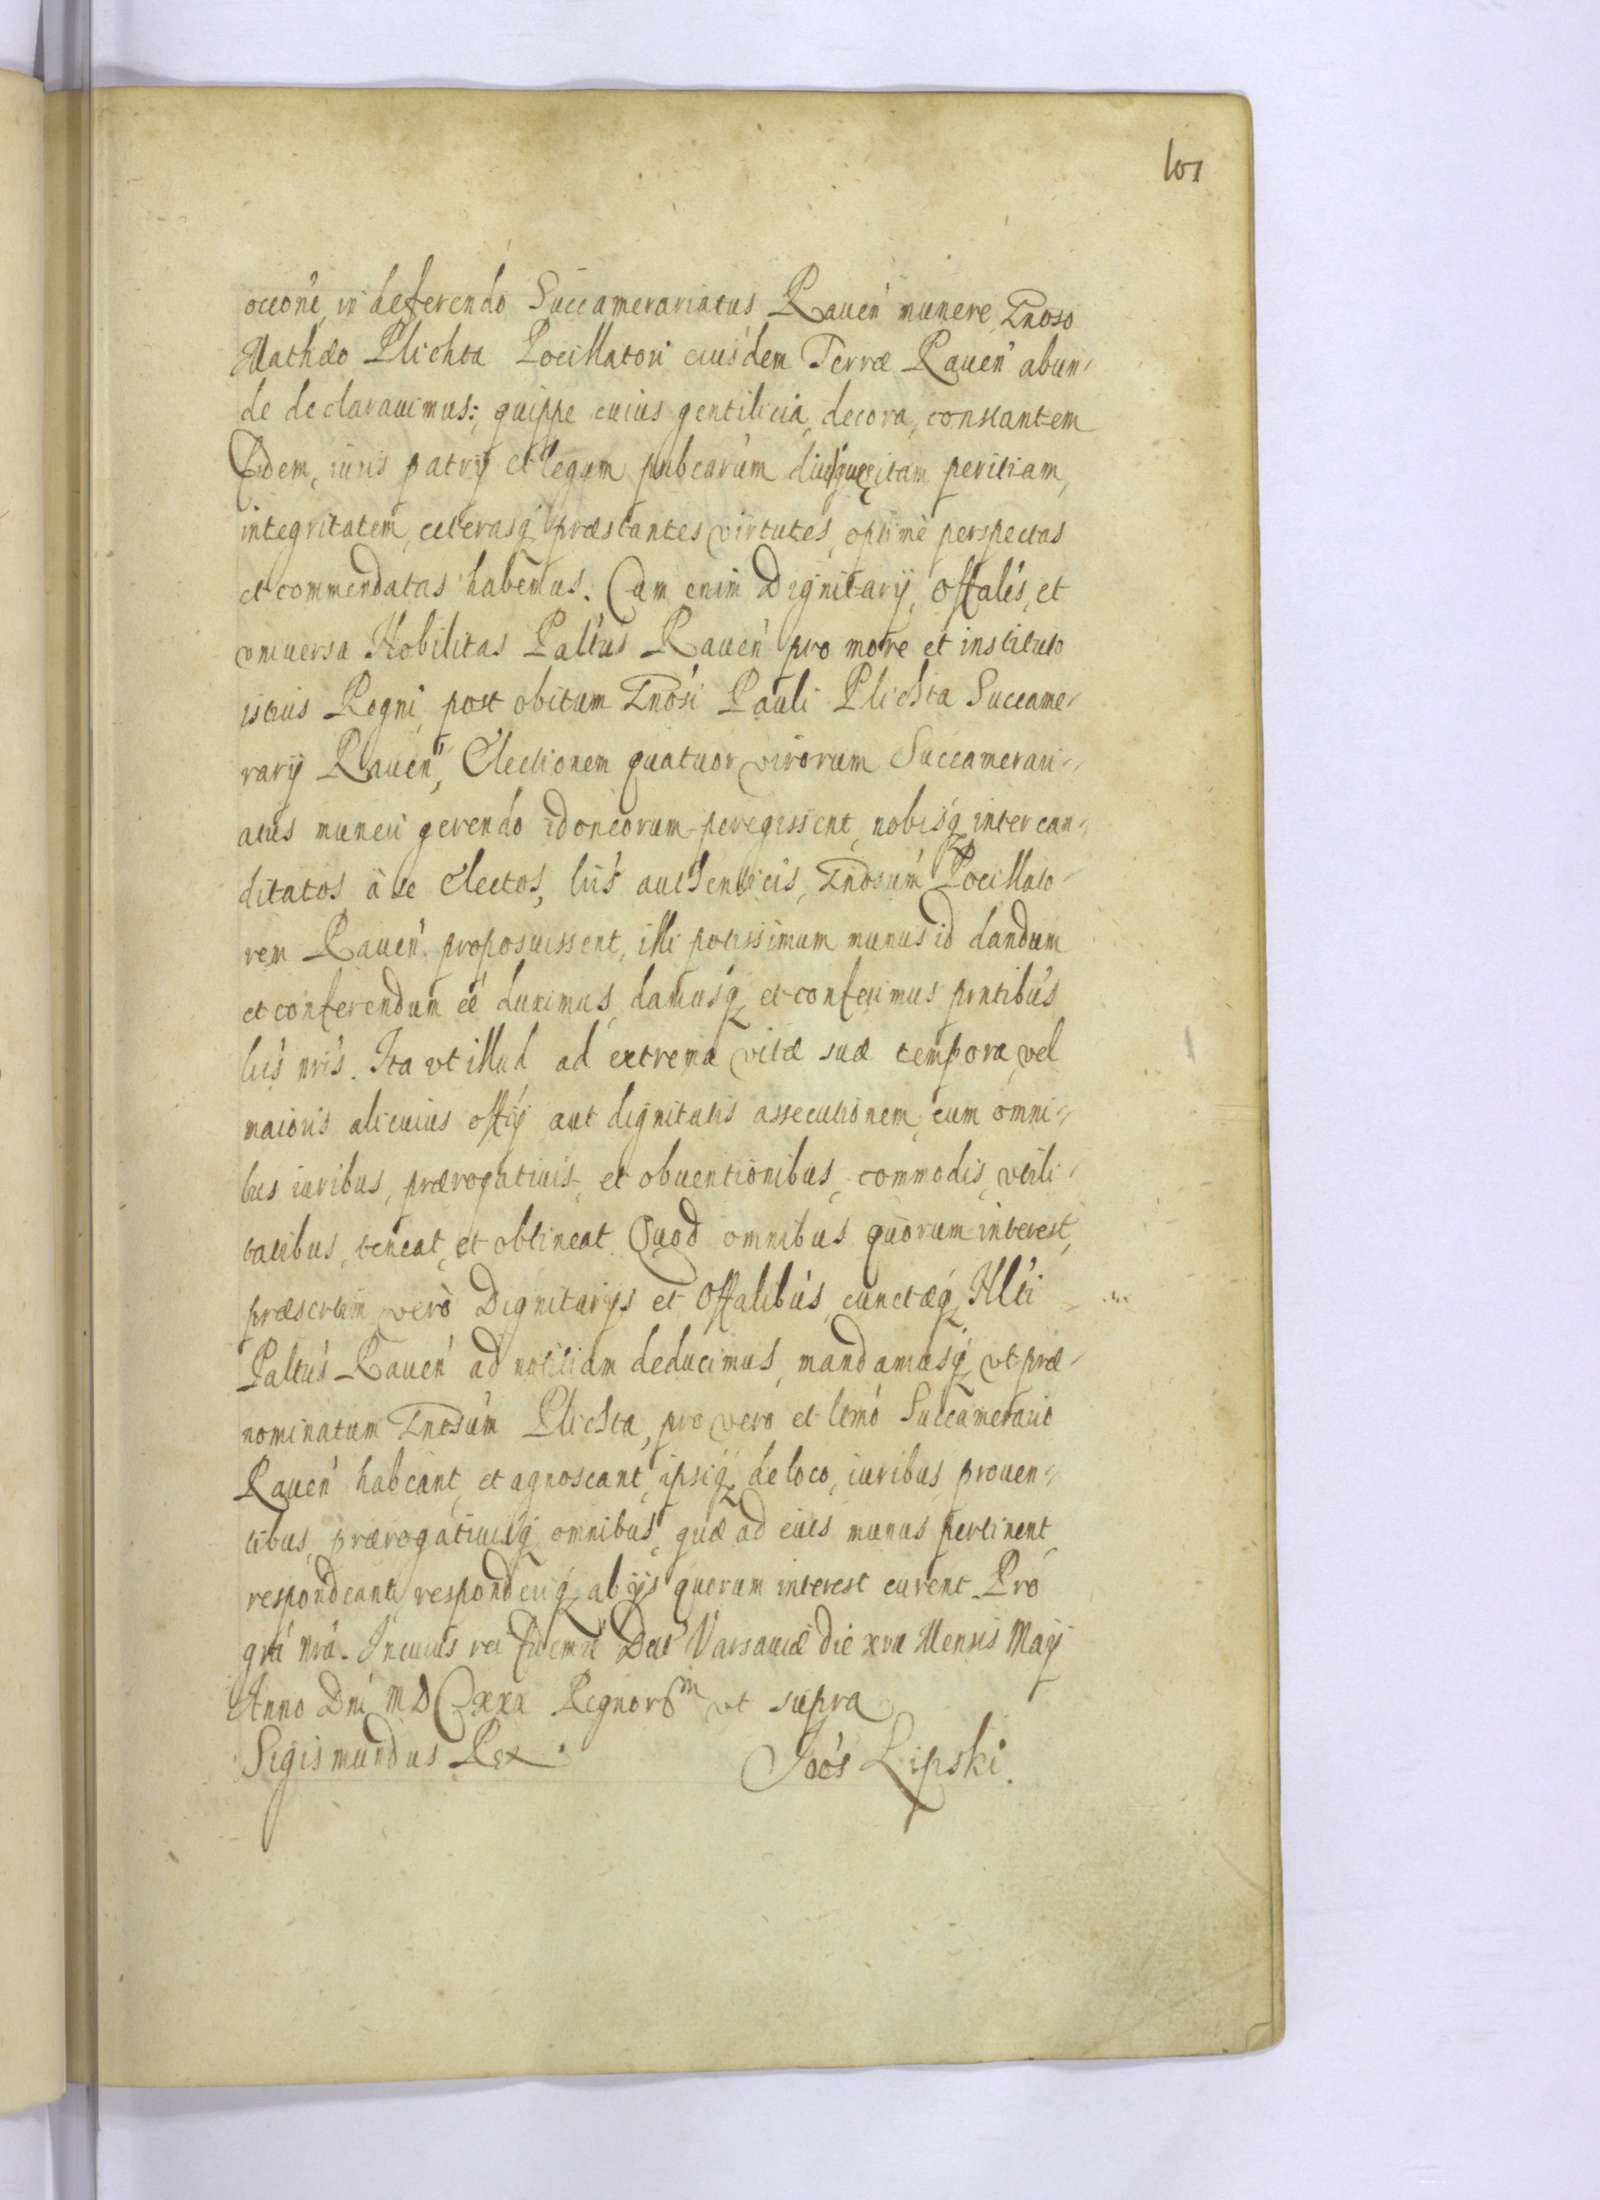 101
occone, in deferendo Succamerariatus Rauen munere, Gnoso
Mathæo Plichta Pocillatori eiusdem Terræ Rauen abun-
de declarauimus: quippe cuius gentilicia decora, constantem
fidem, iuris patrij et legum pubcarum periliam,
integritatem, ceterasq præstantes virtutes, optime perspectas
et commendatas habemus. Cum enim Dignitarij, Offales, et
vniuersa Nobilitas Paltus Rauen pro more et instituto
istius Regni post obitum Gnosi Pauli Plichta Succame-
rarij Rauen, Electionem quatuor virorum Succamerari-
atus muneri gerendo idoneorum peregissent, nobisq inter can-
ditatos à se electos, lris authenticis, Gnosum Pocillato-
rem Rauen proposuissent, illi potissimum munus id dandum
et conferendum eē duximus, damusq et conferimus pntibus
lris nris. Ita vt illud ad extrema vitæ suæ tempora, vel
maioris alicuius offij aut dignitatis assecutionem, cum omni-
bus iuribus, prærogatiuis, et obuentionibus, commodis, vtili-
tatibus, teneat, et obtineat. Quod omnibus quorum interest,
præsertim verò Dignitarijs et Offalibus, cunctæq Nlti
Paltus Rauen ad notitiam deducimus, mandamusq vt præ-
nominatum Gnosum Plichta, pro vero et ltmo Succamerario
Rauen habeant, et agnoscant, ipsiq de loco, iuribus, prouen-
tibus, prærogatiuisq omnibus, quæ ad eius munus pertinent,
respondeant, responderiq ab ijs quorum interest curent. Pro
gra nra. In cuius rei Dat Varsauiæ die xvii Mensis Maij
Anno Dni MDCxxx Regnorum vt supra
Sigismundus Rex. Jaēs Lipski.